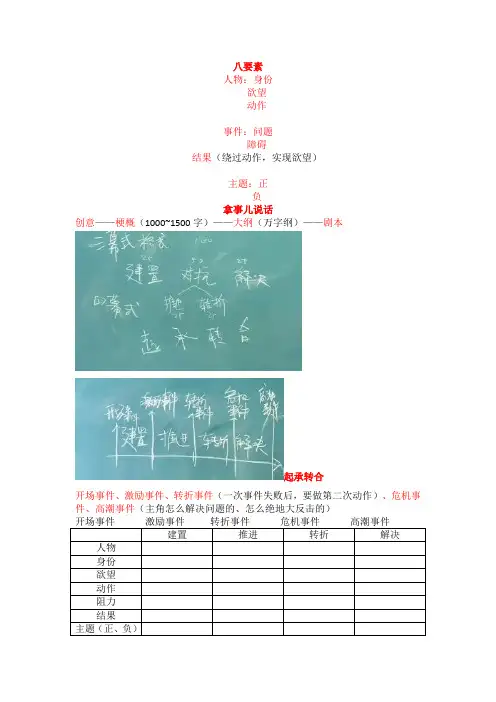 八要素
人物：身份
欲望
动作
事件：问题
障碍
结果（绕过动作，实现欲望）
主题：正
负
拿事儿说话
创意——梗概（1000~1500字）——大纲（万字纲）——剧本
三幕式
建置 对抗 解决
四幕式 推进 转折
起 承 转 合
开场事件 激励事件 转折事件 危机事件 高潮事件
建置 推进 转折 解决
起承转合
开场事件、激励事件、转折事件（一次事件失败后，要做第二次动作）、危机事
件、高潮事件（主角怎么解决问题的、怎么绝地大反击的）
开场事件 激励事件 转折事件 危机事件 高潮事件
建置 推进 转折 解决
人物
身份
欲望
动作
阻力
结果
主题（正、负）